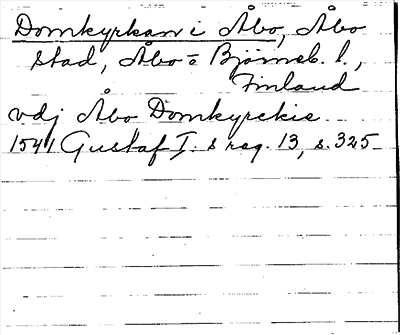 Domkyrkan i Åbo, Åbo
stad, Åbo o Björneb. l.,
Finland
vdj Åbo Domkyrckie
1541 Gustaf I. s reg. 13, s. 325